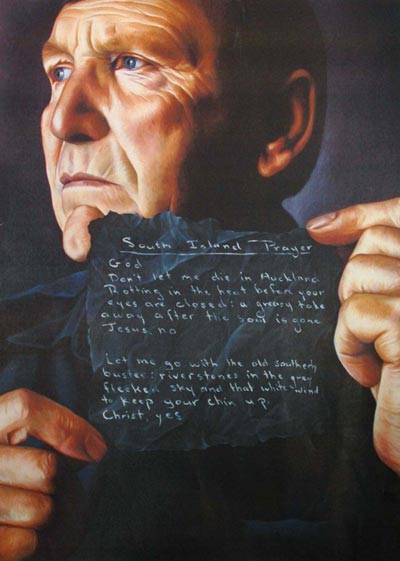 South Island Prayer
God
Don't let me die in Auckland
Rotting in the heat before your
eyes are closed: a greasy take
away after the soul is gone
Jesus, no
Let me go with the old southerly
buster: riverstones in the grey
flecked sky and that white wind
to keep your chin up
Christ, yes